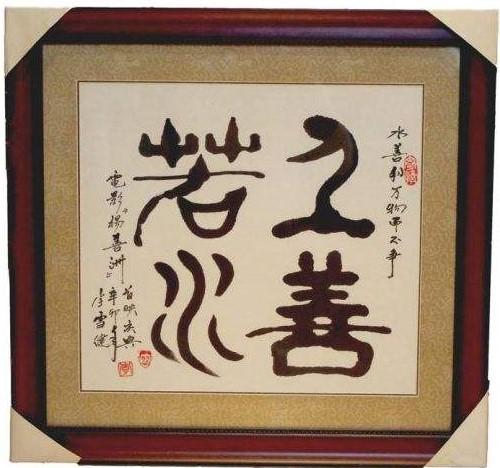 水善利万物而不争
上善
若水
電影“楊善洲”
首映庆典
辛卯年
李雪健